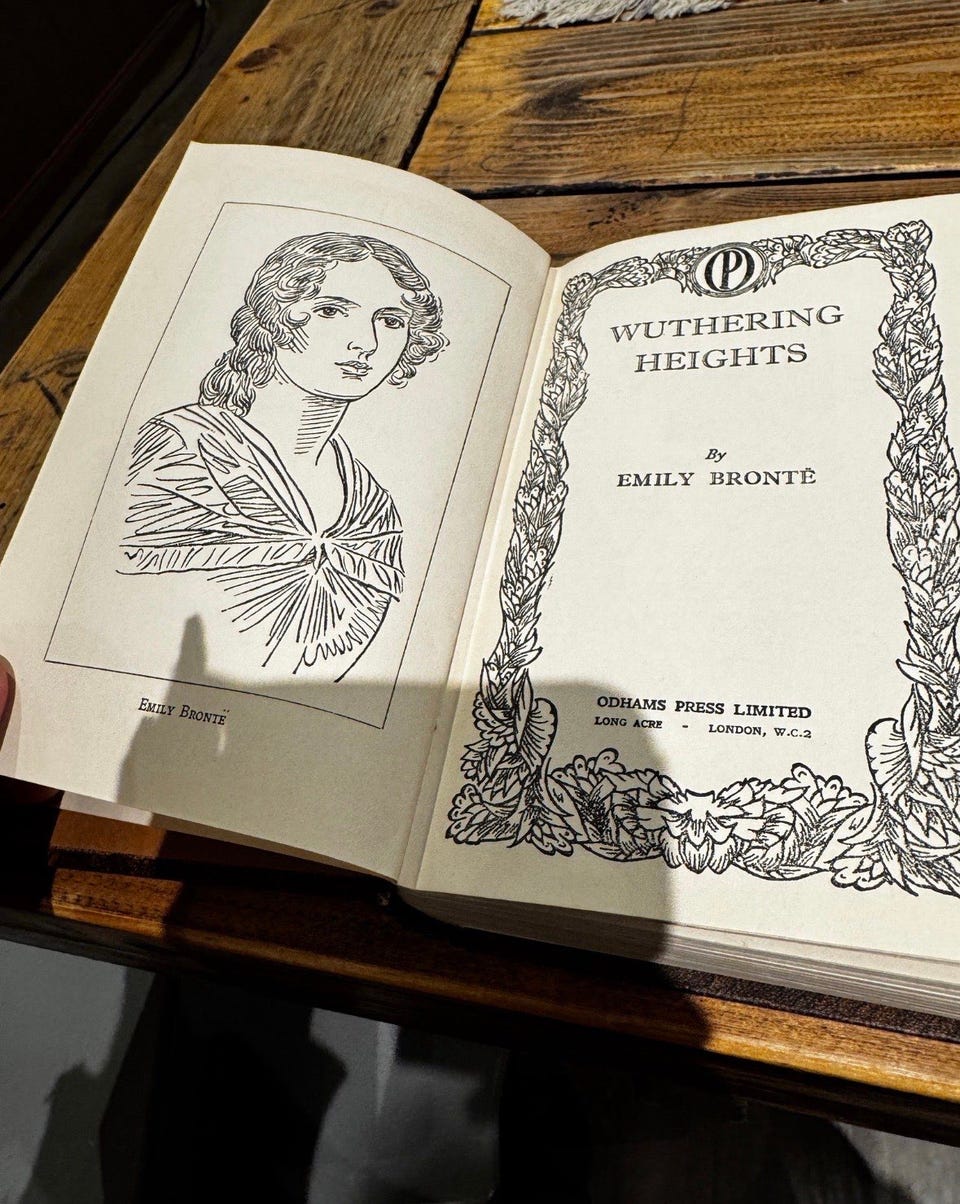 EMILY BRONTË
OP
WUTHERING
HEIGHTS
By
EMILY BRONTË
ODHAMS PRESS LIMITED
LONG ACRE - LONDON, W.C.2